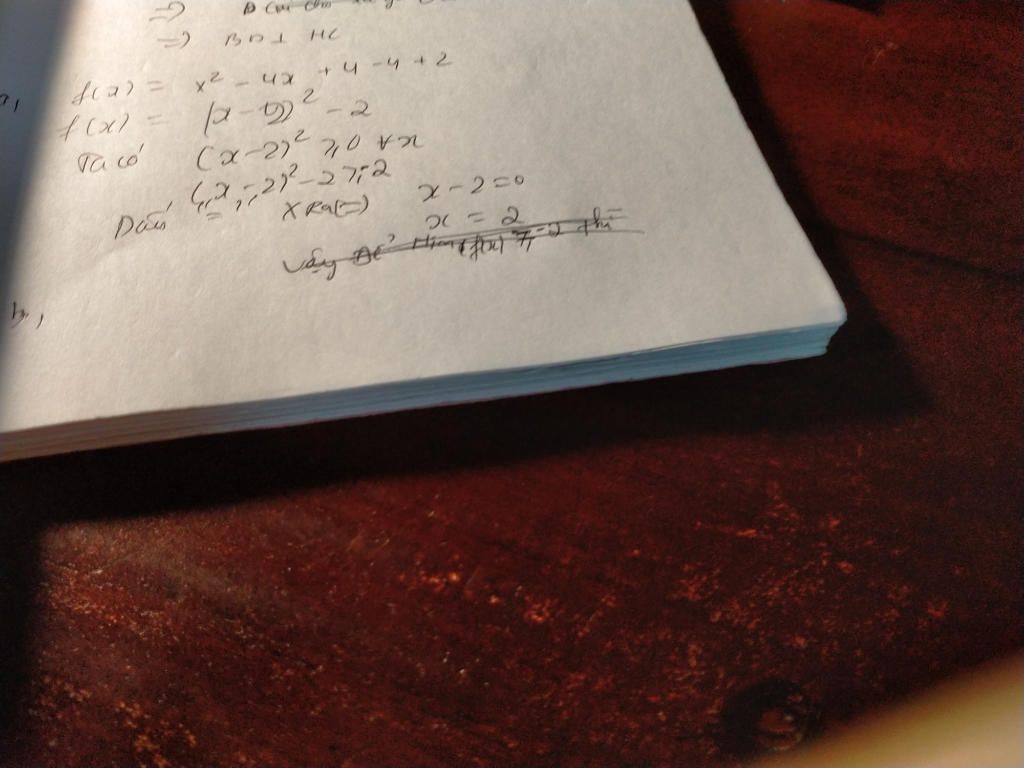 =>
=> BD ⊥ HC
a, f(x) = x² - 4x + 4 - 4 + 2
f(x) = (x - 2)² - 2
Ta có (x - 2)² ≥ 0 ∀x
(x - 2)² - 2 ≥ -2
Dấu "=" xRa(=) x - 2 = 0
x = 2
Vậy f(x) ≥ -2 thì
b,